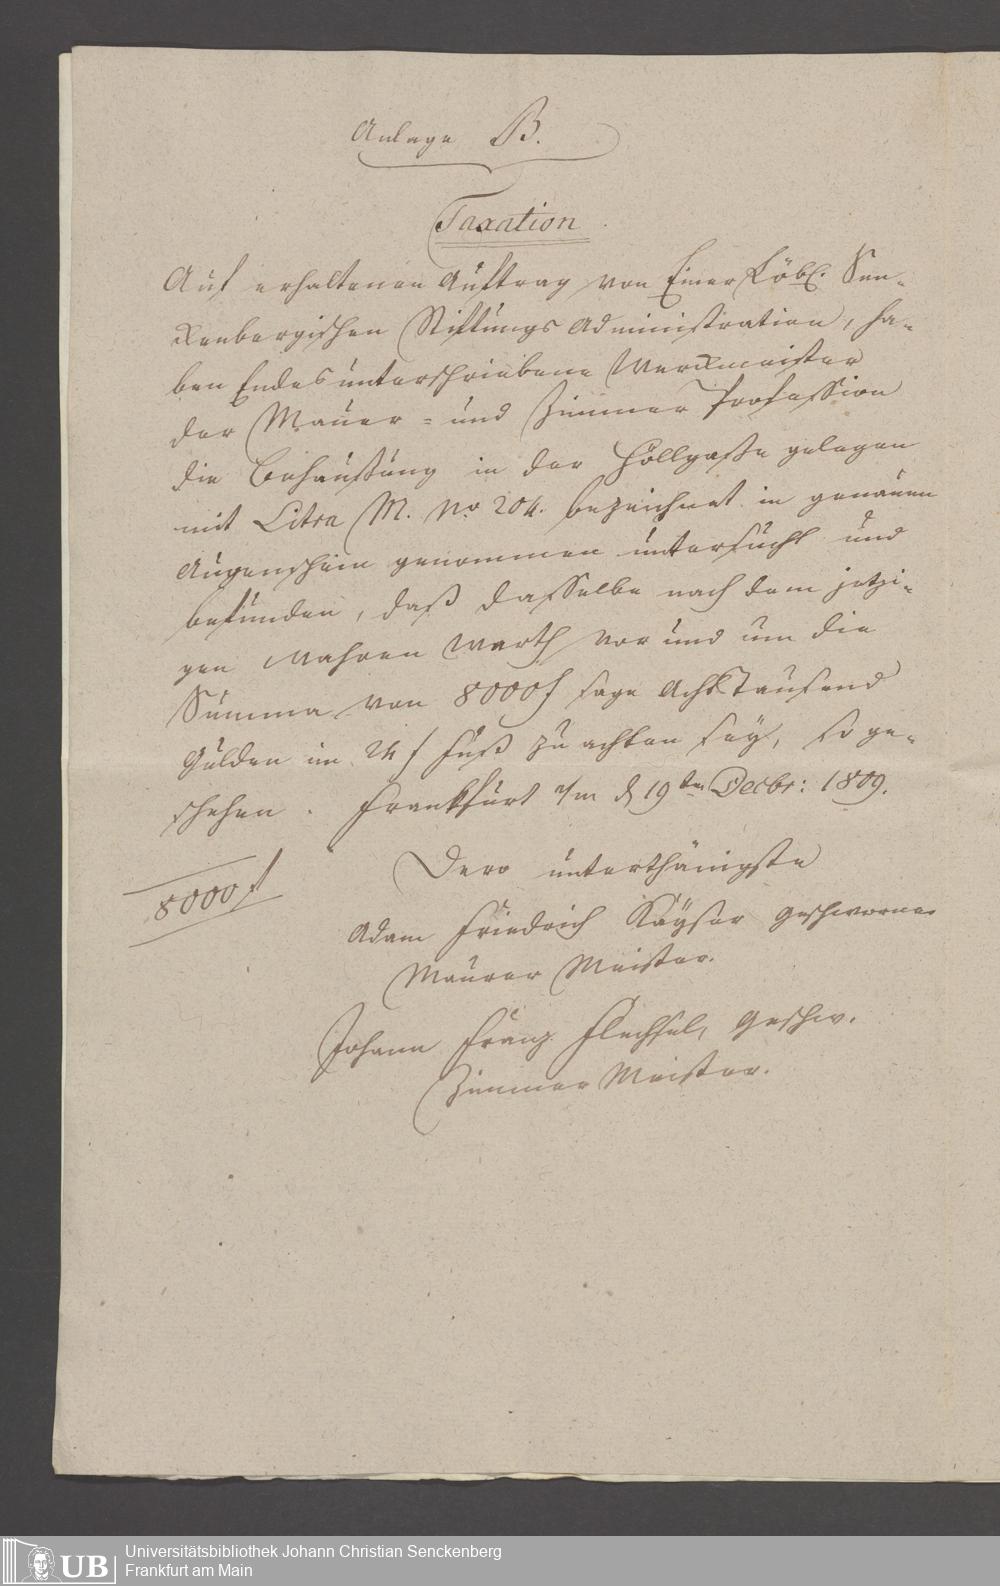 Anlage B.
Taxation
Auf erhaltenen Auftrag von Einer Löbl. Sen-
kenbergischen Stiftungs Administration, ha-
ben Endes unterschriebene Werckmeister
der Mauer- und Zimmer Profession
die Behaußung in der Höllgasse gelegen
mit Litra M. No 204. bezeichnet in genauen
Augenschein genommen untersucht und
befunden, daß dasselbe nach dem jetzi-
gen wahren Werth vor und um die
Summa von 8000 f sage Acht Tausend
Gulden im 24 f Fuß zu achten sey, so ge-
schehen. Frankfurt a/m d 19ten Decbr: 1809.
8000 f
Dero unterthänigste
Adam Friedrich Kayser geschworner
Maurer Meister.
Johann Franz Flechsel, geschw.
Zimmer Meister.
UB Universitätsbibliothek Johann Christian Senckenberg
Frankfurt am Main